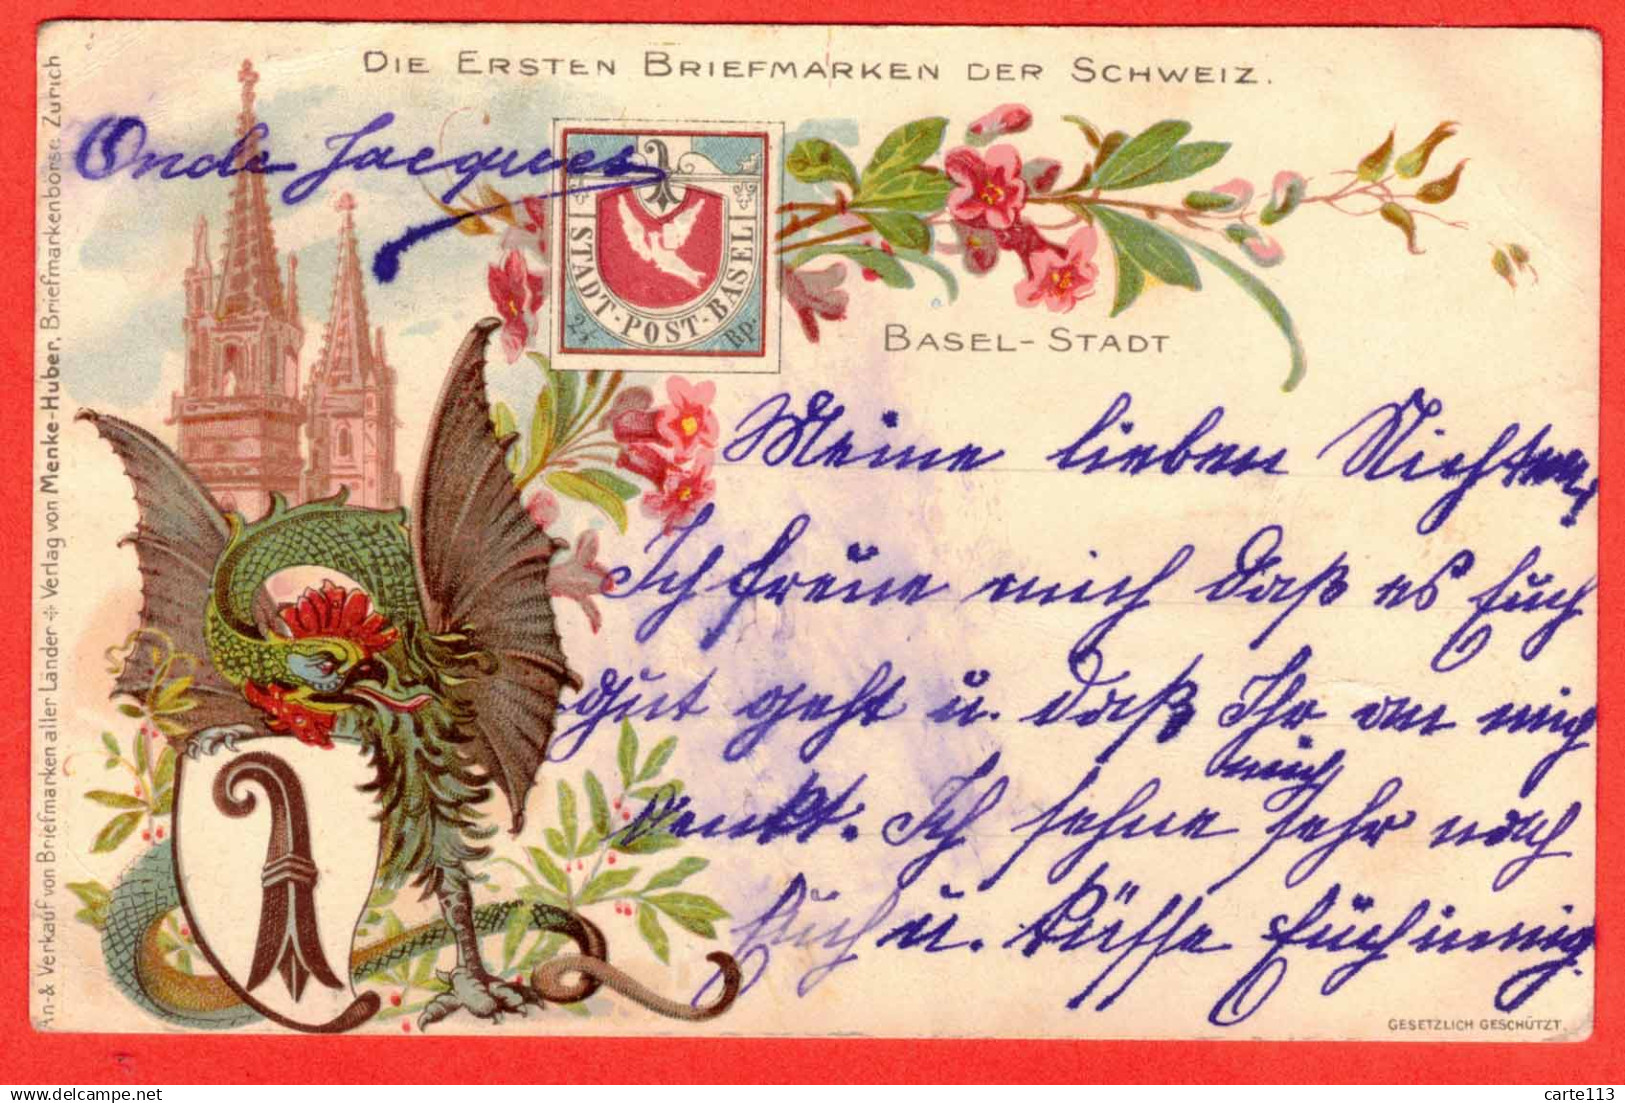 DIE ERSTEN BRIEFMARKEN DER SCHWEIZ.
Oncle Jacques
STADT-POST-BASEL
2½ Rp.
BASEL-STADT
Meine lieben Nichten,
Ich freue mich daß es Euch
gut geht u. daß Ihr an mich
denkt. Ich sehne mich sehr nach
Euch u. küsse Euch innig.
An- & Verkauf von Briefmarken aller Länder ❉ Verlag von Menke-Huber, Briefmarkenbörse, Zürich
GESETZLICH GESCHÜTZT.
delcampe.net
carte113